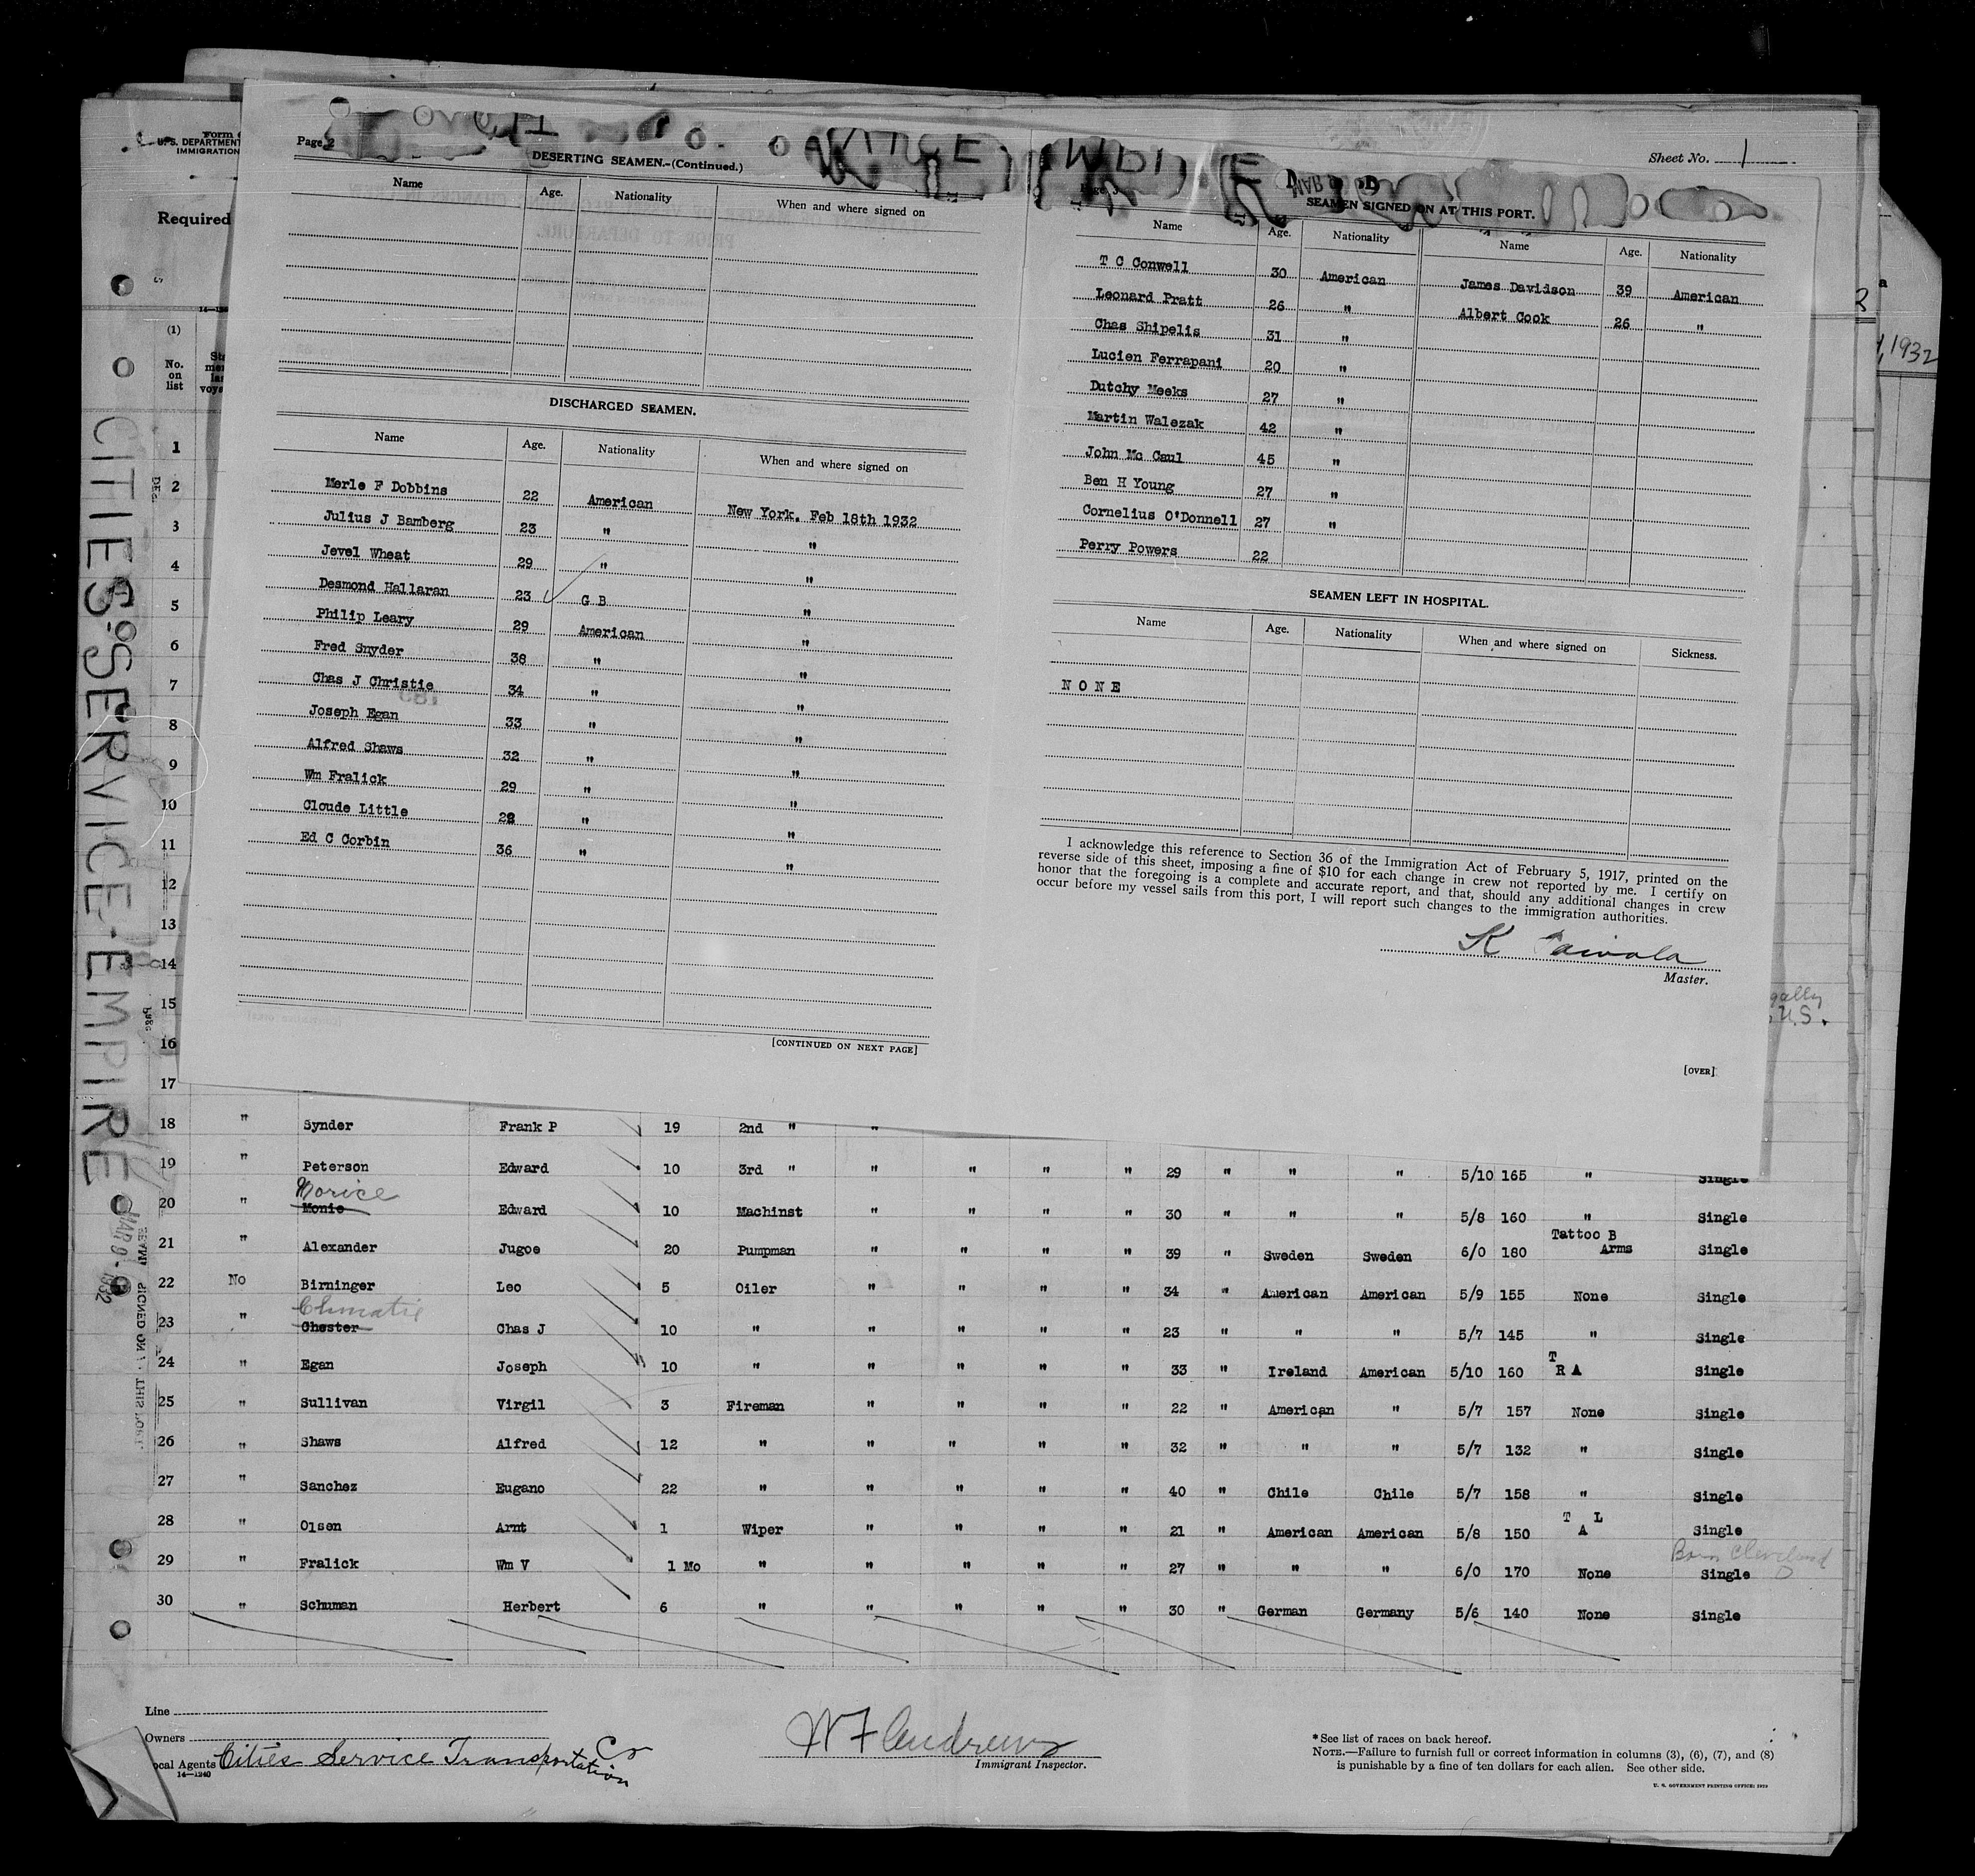 Form
U. S. DEPARTMENT
IMMIGRATION
Required
Sheet No. 1
Page 2
DESERTING SEAMEN.-(Continued.)
Name Age. Nationality When and where signed on
DISCHARGED SEAMEN.
Name Age. Nationality When and where signed on
Merle F Dobbins 22 American New York. Feb 18th 1932
Julius J Bamberg 23 " "
Jevel Wheat 29 " "
Desmond Hallaran 23 G B "
Philip Leary 29 American "
Fred Snyder 38 " "
Chas J Christie 34 " "
Joseph Egan 33 " "
Alfred Shaws 32 " "
Wm Fralick 29 " "
Cloude Little 28 " "
Ed C Corbin 36 " "
[CONTINUED ON NEXT PAGE]
SEAMEN SIGNED ON AT THIS PORT.
Name Age. Nationality Name Age. Nationality
T C Conwell 30 American James Davidson 39 American
Leonard Pratt 26 " Albert Cook 26 "
Chas Shipelis 31 "
Lucien Ferrapani 20 "
Dutchy Meeks 27 "
Martin Walezak 42 "
John Mc Caul 45 "
Ben H Young 27 "
Cornelius O'Donnell 27 "
Perry Powers 22
SEAMEN LEFT IN HOSPITAL.
Name Age. Nationality When and where signed on Sickness.
N O N E
I acknowledge this reference to Section 36 of the Immigration Act of February 5, 1917, printed on the
reverse side of this sheet, imposing a fine of $10 for each change in crew not reported by me. I certify on
honor that the foregoing is a complete and accurate report, and that, should any additional changes in crew
occur before my vessel sails from this port, I will report such changes to the immigration authorities.
K
Master.
[OVER]
, 1932
gally
U.S.
(1)
No.
on
list
CITIES SERVICE EMPIRE
MAR 9 1932
1
2
3
4
5
6
7
8
9
10
11
12
13
14
15
16
17
18 " Synder Frank P 19 2nd " "
19 " Peterson Edward 10 3rd " " " " " 29 " " " 5/10 165 " Single
Morice
20 " Monie Edward 10 Machinst " " " " 30 " " " 5/8 160 " Single
21 " Alexander Jugoe 20 Pumpman " " " " 39 " Sweden Sweden 6/0 180 Tattoo B Arms Single
22 No Birninger Leo 5 Oiler " " " " 34 " American American 5/9 155 None Single
23 " Chester Chas J 10 " " " " " 23 " " " 5/7 145 " Single
24 " Egan Joseph 10 " " " " " 33 " Ireland American 5/10 160 T R A Single
25 " Sullivan Virgil 3 Fireman " " " " 22 " American " 5/7 157 None Single
26 " Shaws Alfred 12 " " " " " 32 " " " 5/7 132 " Single
27 " Sanchez Eugano 22 " " " " " 40 " Chile Chile 5/7 158 " Single
28 " Olsen Arnt 1 Wiper " " " " 21 " American American 5/8 150 T L A Single
Born Cleveland O
29 " Fralick Wm V 1 Mo " " " " " 27 " " " 6/0 170 None Single
30 " Schuman Herbert 6 " " " " " 30 " German Germany 5/6 140 None Single
Line
Owners
ocal Agents Cities Service Transportation Co
14—1240
W F Andrews
Immigrant Inspector.
* See list of races on back hereof.
NOTE.—Failure to furnish full or correct information in columns (3), (6), (7), and (8)
is punishable by a fine of ten dollars for each alien. See other side.
U. S. GOVERNMENT PRINTING OFFICE: 1929